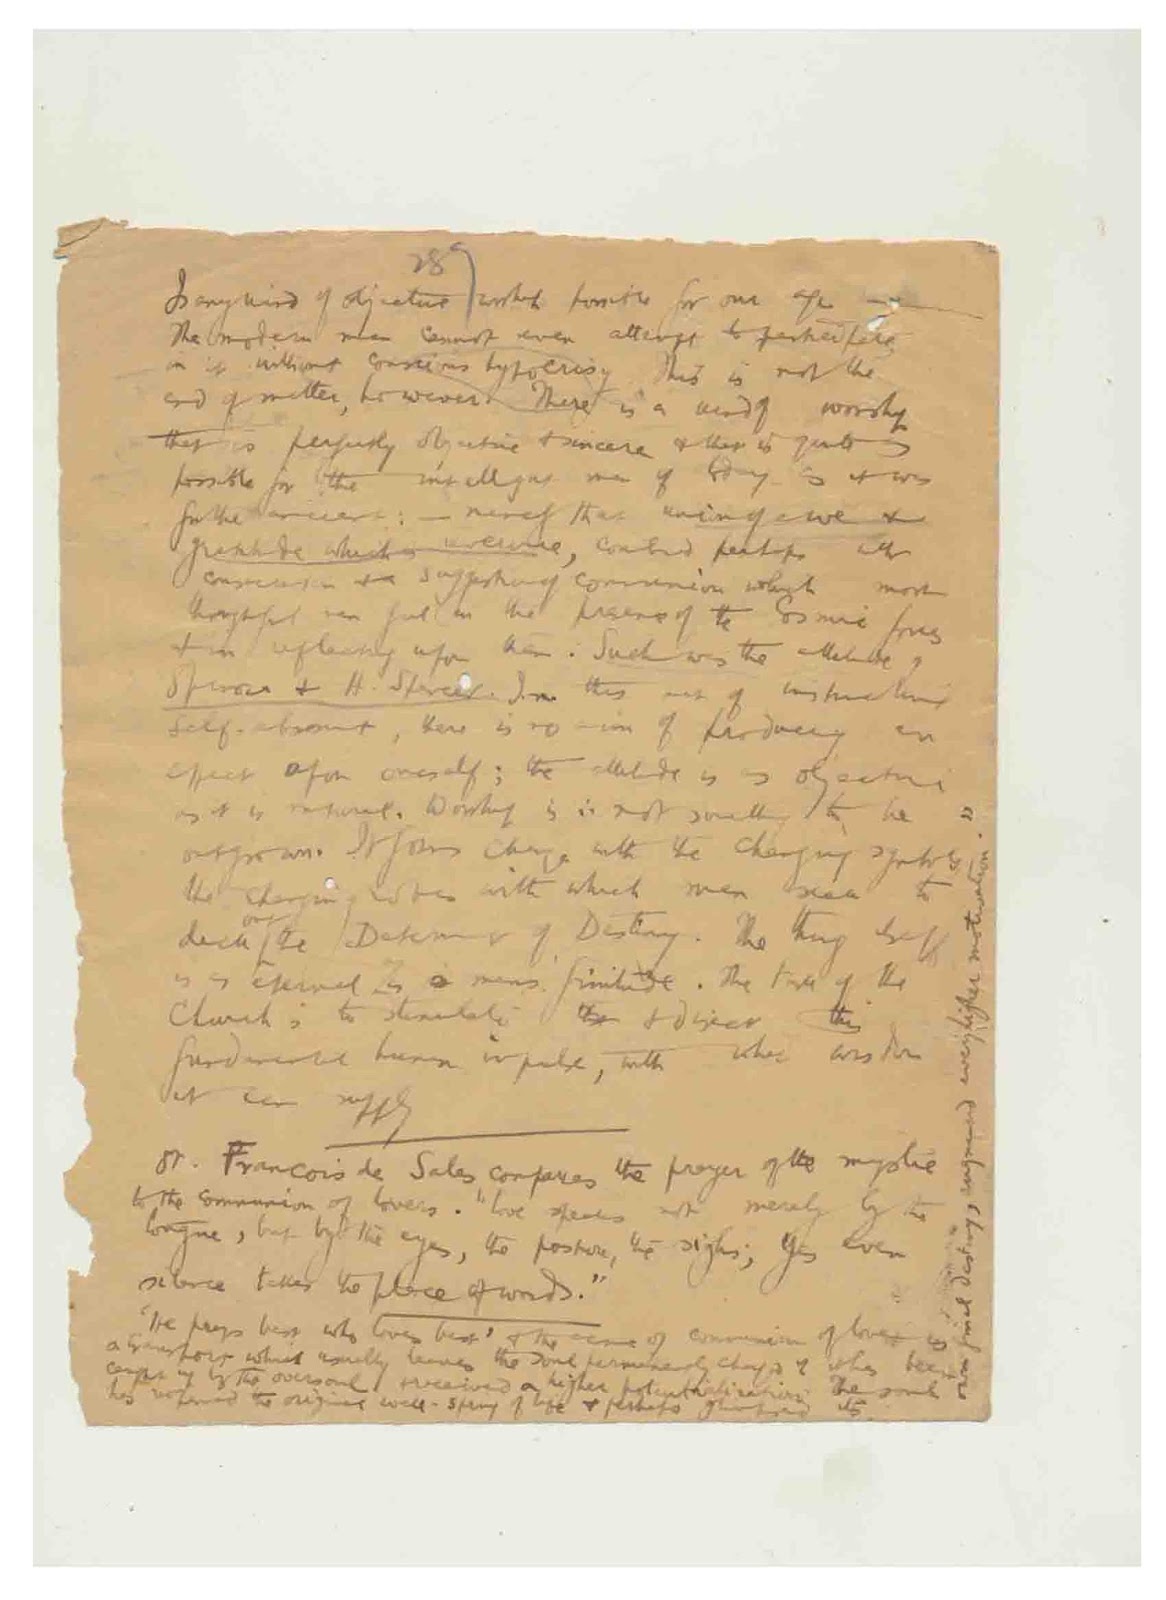 28
Is any kind of objective worship possible for our age
The modern man cannot even attempt to participate
in it without conscious hypocrisy This is not the
end of matter, however. There is a kind of worship
that is perfectly objective & sincere & that is quite as
possible for the intelligent man of today as it was
for the ancient: — namely that union of awe &
gratitude which is reverence, combined perhaps with
consecration & a suggestion of communion which most
thoughtful men feel in the presence of the Cosmic forces
& in reflecting upon them. Such was the attitude of
Spinoza & H. Spencer. In this sort of
self- , there is no aim of producing an
effect upon oneself; the attitude is as objective
as it is natural. Worship is not something to be
outgrown. Its forms change with the changing symbols
the changing with which men seek to
deck out the Determiner of Destiny. The thing itself
is as eternal as is man's finitude. The task of the
Church is to stimulate & direct this
fundamental human impulse, with what wisdom
it can supply
St. Francois de Sales compares the prayer of the mystic
to the communion of lovers. "love speaks not merely by the
tongue, but by the eyes, the posture, the sighs; Yes even
silence takes the place of words."
"He prays best who loves best" & the of communion of love is
a transport which usually leaves the soul permanently changed it has been
caught up by the oversoul & received a higher potentialization The soul
has returned to original well-spring of life & perhaps glimpsed its
own final destiny, augmented every higher motivation."